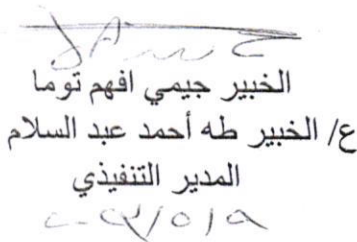 الخبير جيمي افهم توما
ع/ الخبير طه أحمد عبد السلام
المدير التنفيذي